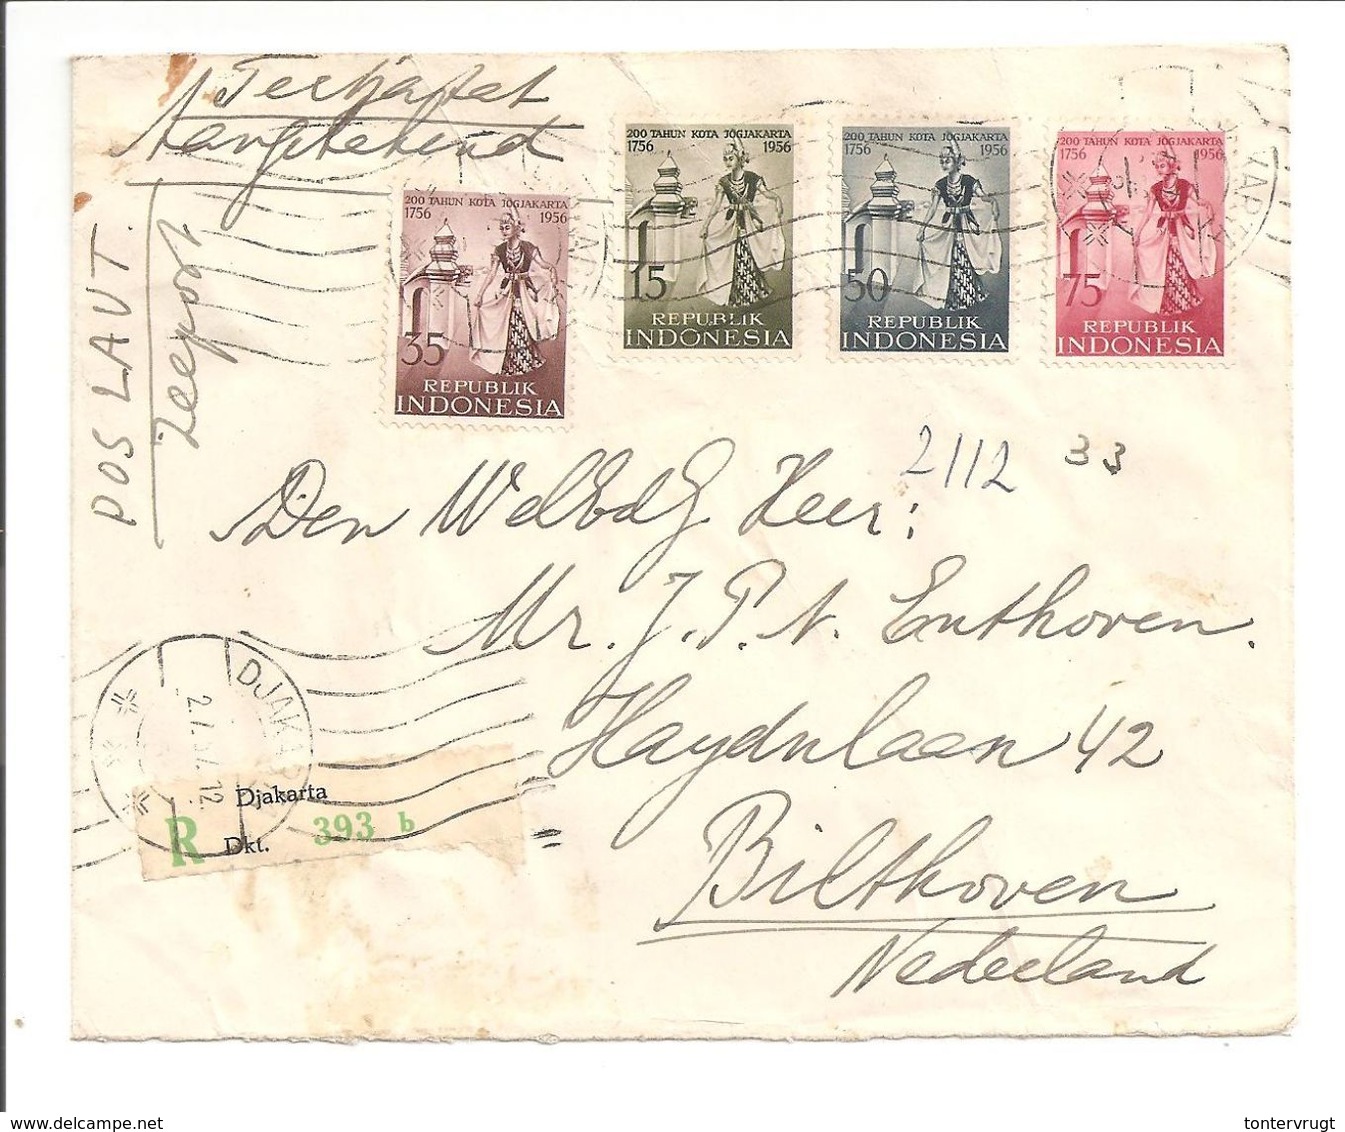 Tertjatat
Aangetekend
POS LAUT.
Zeepost
200 TAHUN KOTA JOGJAKARTA
1756 1956
35
REPUBLIK
INDONESIA
200 TAHUN KOTA JOGJAKARTA
1756 1956
15
REPUBLIK
INDONESIA
200 TAHUN KOTA JOGJAKARTA
1756 1956
50
REPUBLIK
INDONESIA
200 TAHUN KOTA JOGJAKARTA
1756 1956
75
REPUBLIK
INDONESIA
2/12 33
Den WelEdG Heer:
Mr. J. P. A. Enthoven.
Haydnlaan 42
Bilthoven
Nederland
Djakarta
R Dkt. 393 b
delcampe.net
tontervrugt